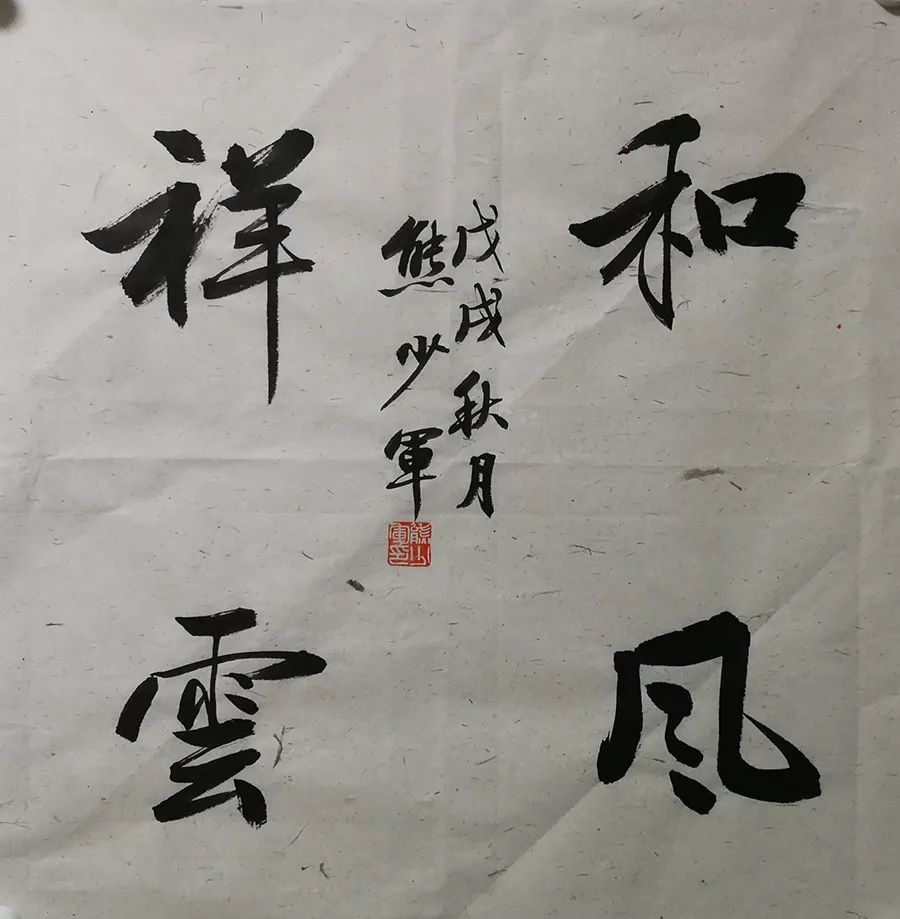 和风
祥雲
戊戌秋月
熊少军
熊少軍印